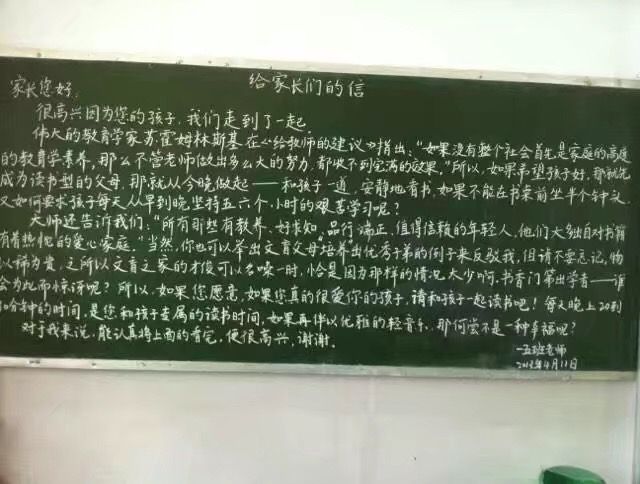 给家长们的信
家长您好:
很高兴因为您的孩子,我们走到了一起。
伟大的教育学家苏霍姆林斯基在《给教师的建议》指出,“如果没有整个社会首先是家庭的高度
的教育学素养,那么不管老师做出多么大的努力,都收不到完满的效果。”所以,如果希望孩子好,那就先
成为读书型的父母,那就从今晚做起——和孩子一道,安静地看书,如果不能在书桌前坐半个钟头,
又如何要求孩子每天从早到晚坚持五六个小时的艰苦学习呢?
大师还告诉我们:“所有那些有教养、好求知、品行端正、值得信赖的年轻人,他们大多出自对书籍
有着热忱的爱心家庭。”当然,你也可以举出文盲父母培养出优秀子弟的例子来反驳我,但请不要忘记,物
以稀为贵,之所以文盲之家的才俊可以名噪一时,恰是因为那样的情况太少啊,书香门第出学者——谁
会为此而惊讶呢?所以,如果您愿意,如果您真的很爱你的孩子,请和孩子一起读书吧!每天晚上20到
分钟的时间,是您和孩子专属的读书时间,如果再伴以优雅的轻音乐,那何尝不是一种幸福呢?
对于我来说,能认真将上面的看完,便很高兴,谢谢。
一五班老师
年4月11日